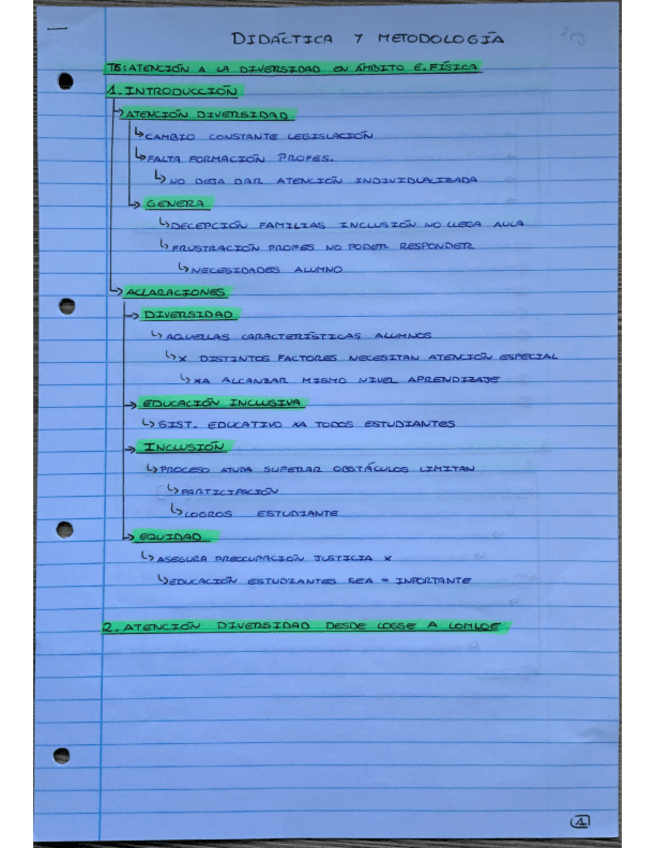 DIDÁCTICA Y METODOLOGÍA
T5: ATENCIÓN A LA DIVERSIDAD EN ÁMBITO E. FÍSICA
1. INTRODUCCIÓN
ATENCIÓN DIVERSIDAD
CAMBIO CONSTANTE LEGISLACIÓN
FALTA FORMACIÓN PROFES.
NO DEJA DAR ATENCIÓN INDIVIDUALIZADA
GENERA
DECEPCIÓN FAMILIAS INCLUSIÓN NO LLEGA AULA
FRUSTRACIÓN PROFES NO PODER RESPONDER
NECESIDADES ALUMNO
ACLARACIONES
DIVERSIDAD
AQUELLAS CARACTERÍSTICAS ALUMNOS
X DISTINTOS FACTORES NECESITAN ATENCIÓN ESPECIAL
XA ALCANZAR MISMO NIVEL APRENDIZAJE
EDUCACIÓN INCLUSIVA
SIST. EDUCATIVO XA TODOS ESTUDIANTES
INCLUSIÓN
PROCESO AYUDA SUPERAR OBSTÁCULOS LIMITAN
PARTICIPACIÓN
LOGROS ESTUDIANTE
EQUIDAD
ASEGURA PREOCUPACIÓN JUSTICIA X
EDUCACIÓN ESTUDIANTES SEA = IMPORTANTE
2. ATENCIÓN DIVERSIDAD DESDE LOGSE A LOMLOE
1